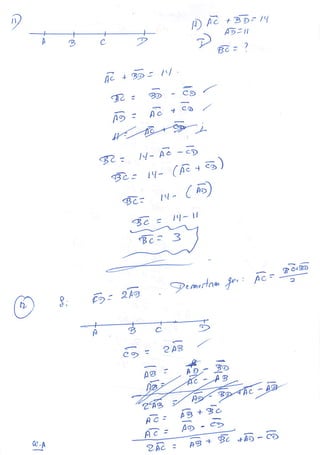 11)
A B C D
H) AC + BD = 14
AD = 11
I) BC = ?
AC + BD = 14
BC = BD - CD
AD = AC + CD
BC = 14 - AC - CD
BC = 14 - (AC + CD)
BC = 14 - (AD)
BC = 14 - 11
BC = 3
12 S. CD = 2AB . Demostrar que: AC =
A B C D
CD = 2AB
AB = AD - BD
AB = AC - AB
2AB = AD - BD + AC - AB
AC = AB + BC
AC = AD - CD
2AC = AB + BC + AD - CD